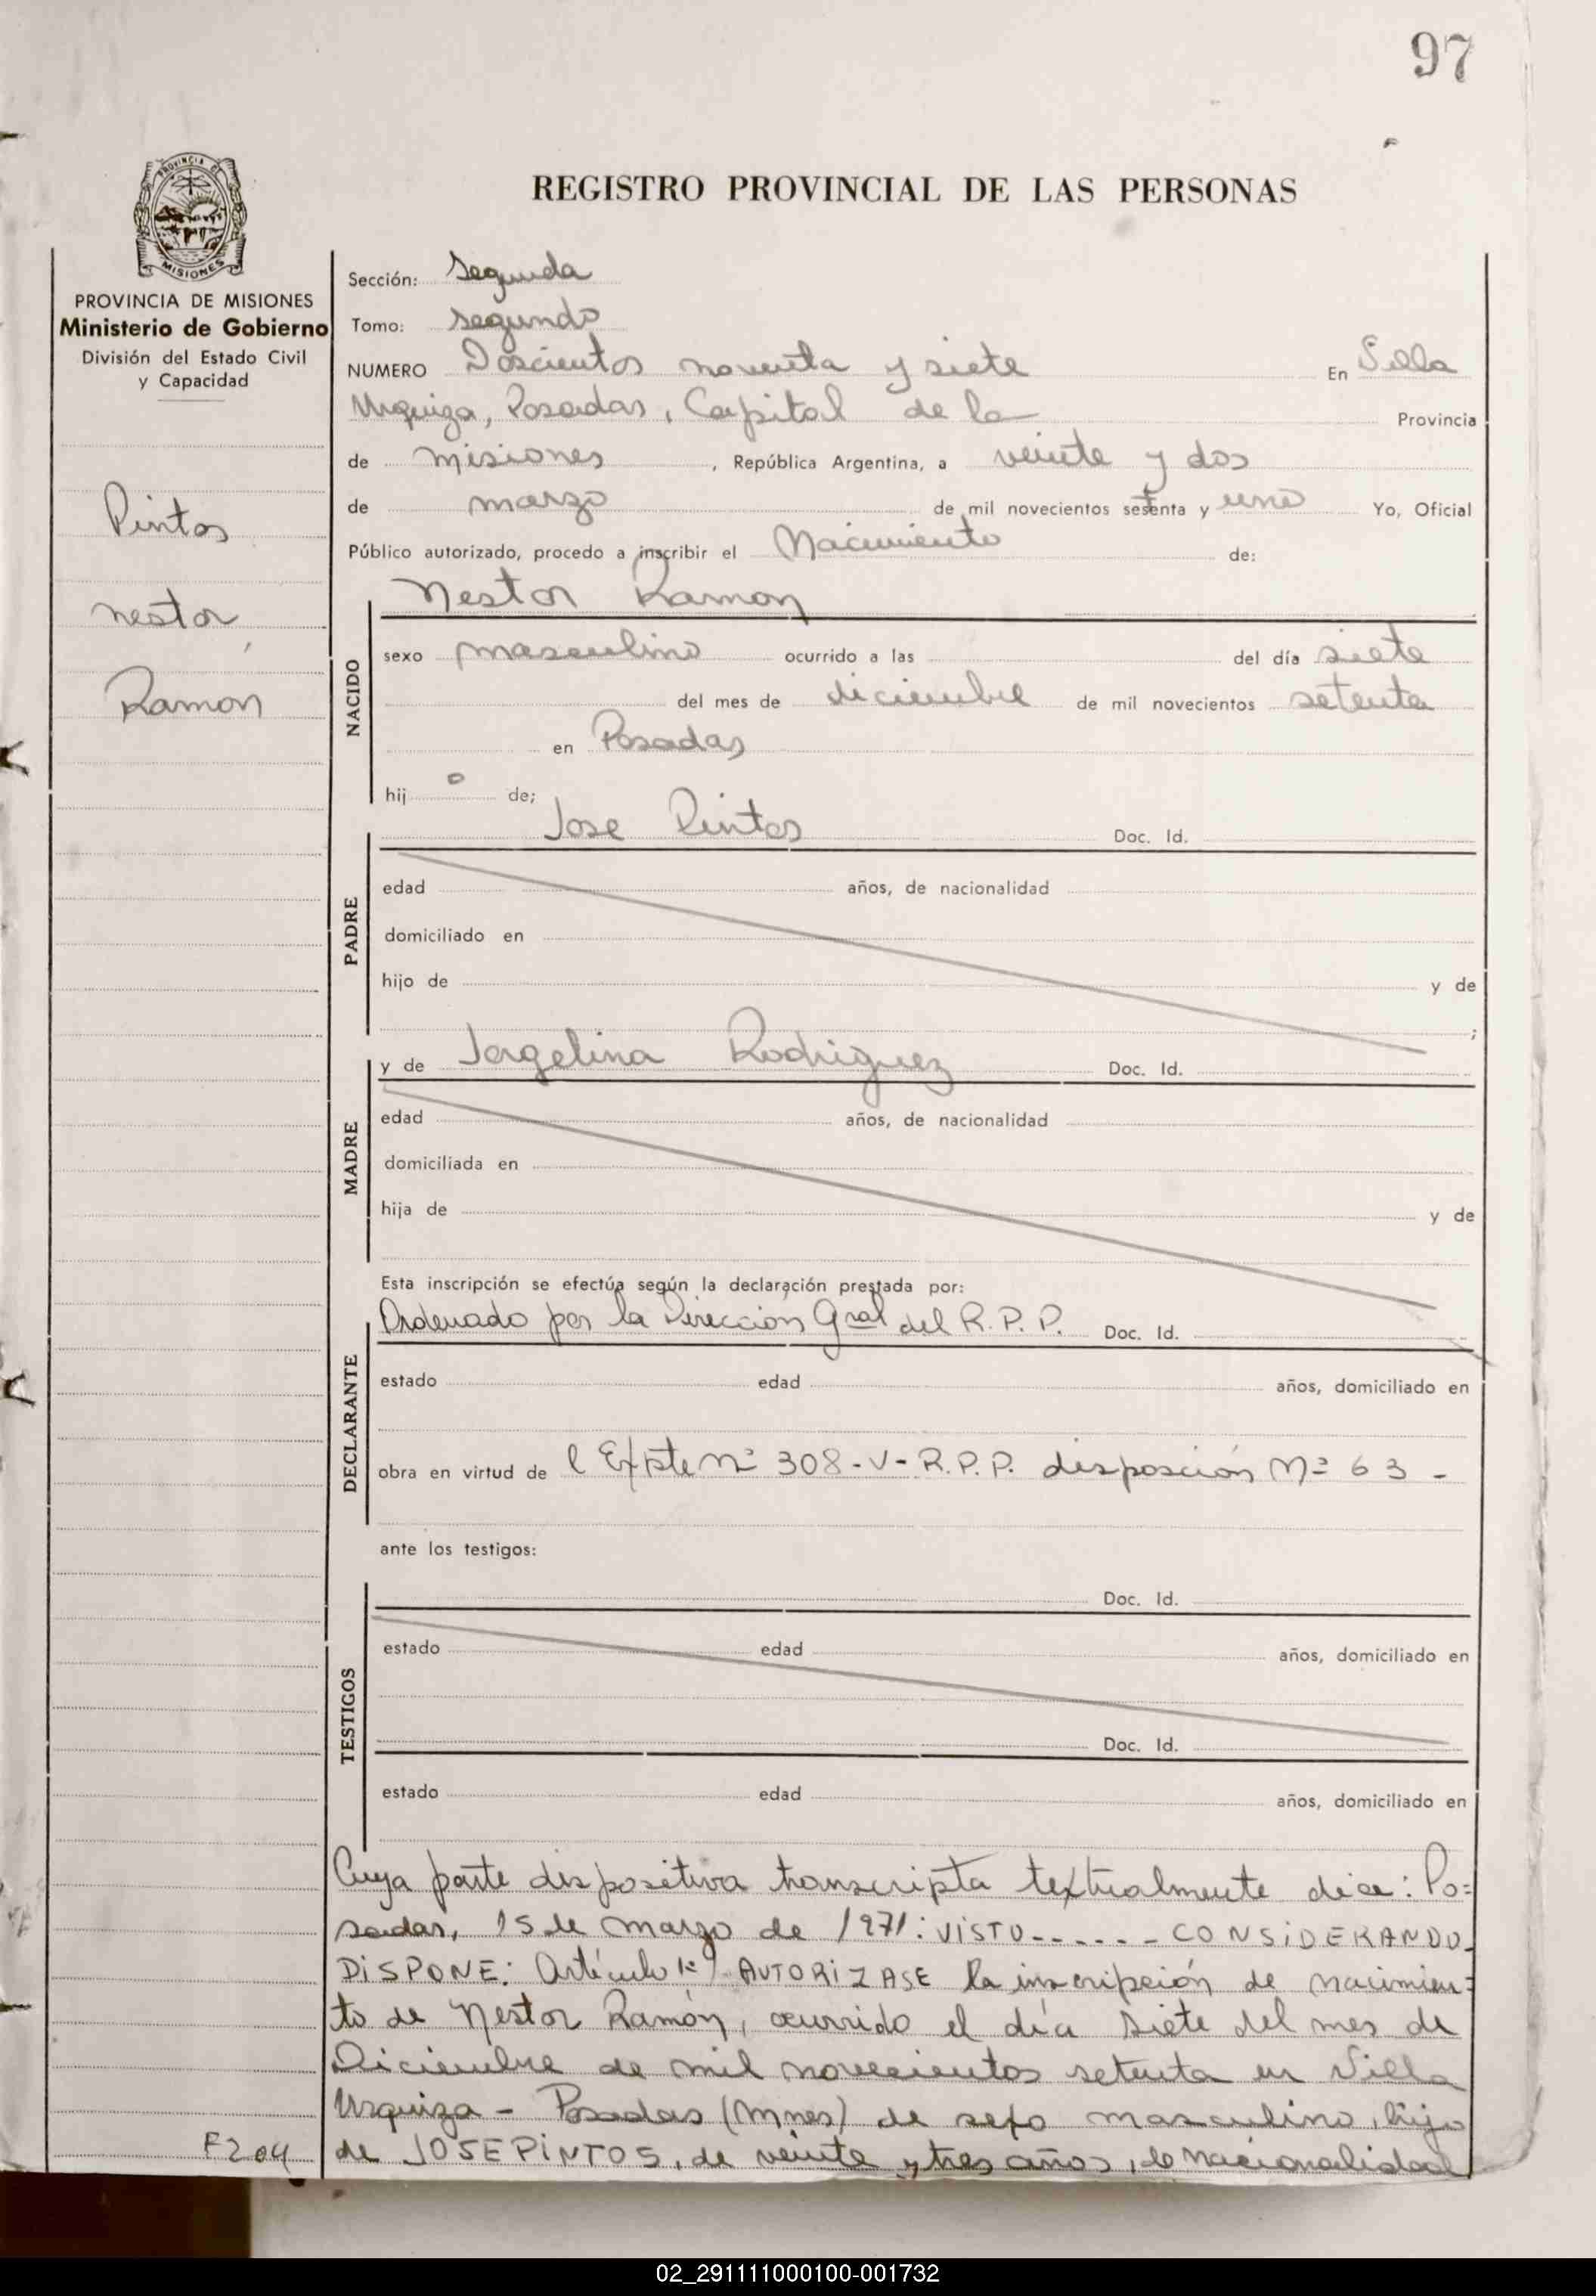 97
PROVINCIA DE
MISIONES
REGISTRO PROVINCIAL DE LAS PERSONAS
PROVINCIA DE MISIONES
Ministerio de Gobierno
División del Estado Civil
y Capacidad
Pintos
nestor,
Ramon
Sección: Segunda
Tomo: segundo
NUMERO Doscientos noventa y siete En Villa
Urquiza, Posadas, Capital de la Provincia
de misiones, República Argentina, a veinte y dos
de marzo de mil novecientos setenta y uno Yo, Oficial
Público autorizado, procedo a inscribir el Nacimiento de:
Nestor Ramon
NACIDO
sexo masculino ocurrido a las del día siete
del mes de diciembre de mil novecientos setenta
en Posadas
hijo de;
Jose Pintos Doc. Id.
PADRE
edad años, de nacionalidad
domiciliado en
hijo de y de
;
y de Jorgelina Rodriguez Doc. Id.
MADRE
edad años, de nacionalidad
domiciliada en
hija de y de
Esta inscripción se efectúa según la declaración prestada por:
Ordenado por la Dirección Gral del R.P.P. Doc. Id.
DECLARANTE
estado edad años, domiciliado en
obra en virtud de l Expte nº 308-V-R.P.P. disposción Nº 63-
ante los testigos:
Doc. Id.
TESTIGOS
estado edad años, domiciliado en
Doc. Id.
estado edad años, domiciliado en
Cuya parte dispositiva transcripta textualmente dice: Po=
sadas, 15 de marzo de 1971: VISTO------CONSIDERANDO-
DISPONE: Artículo 1º) AUTORIZASE la inscripción de nacimien=
to de Nestor Ramón, ocurrido el día siete del mes de
Diciembre de mil novecientos setenta en Villa
Urquiza - Posadas (Mnes) de sexo masculino, hijo
de JOSE PINTOS, de veinte y tres años, de nacionalidad
F204
02_291111000100-001732